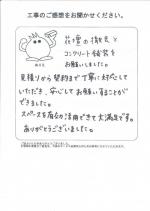 工事のご感想をお聞かせください。
花壇の撤去と
コンクリート舗装を
お願いしました。
見積りから契約まで丁寧に対応して
いただき、安心してお願いすることが
できました。
スペースを有効に活用できて大満足です。
ありがとうございました。